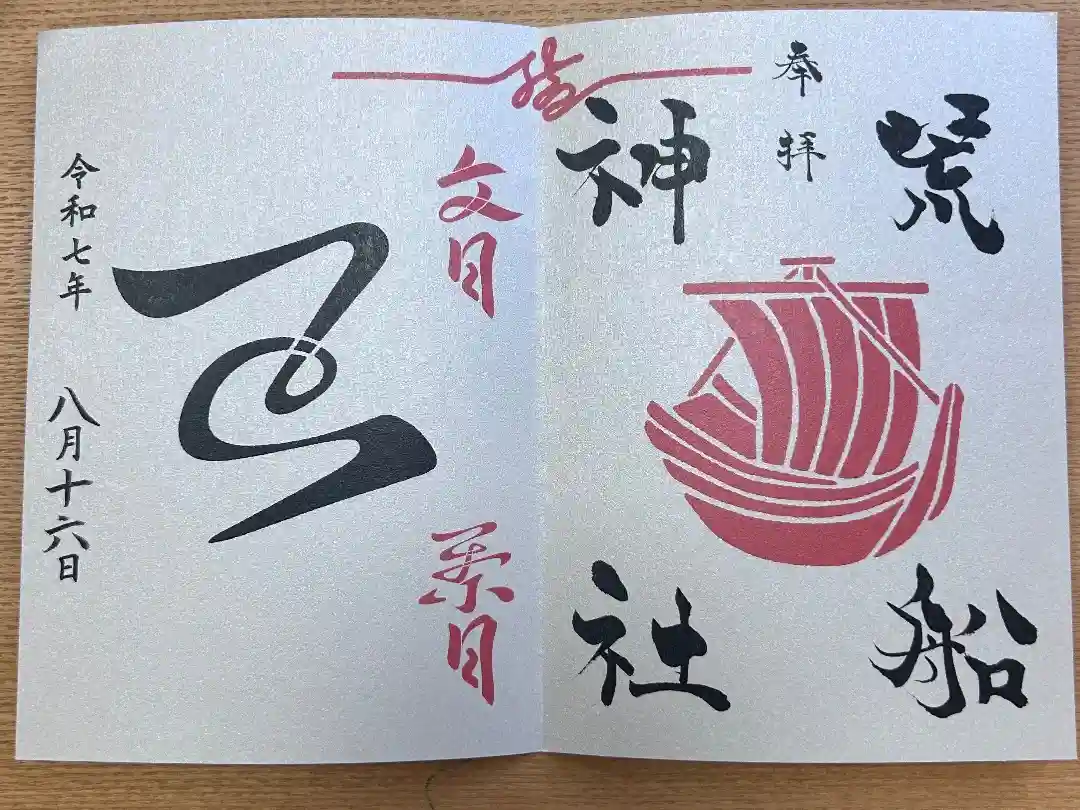 奉拝
荒船
神社
文月
葉月
令和七年 八月十六日